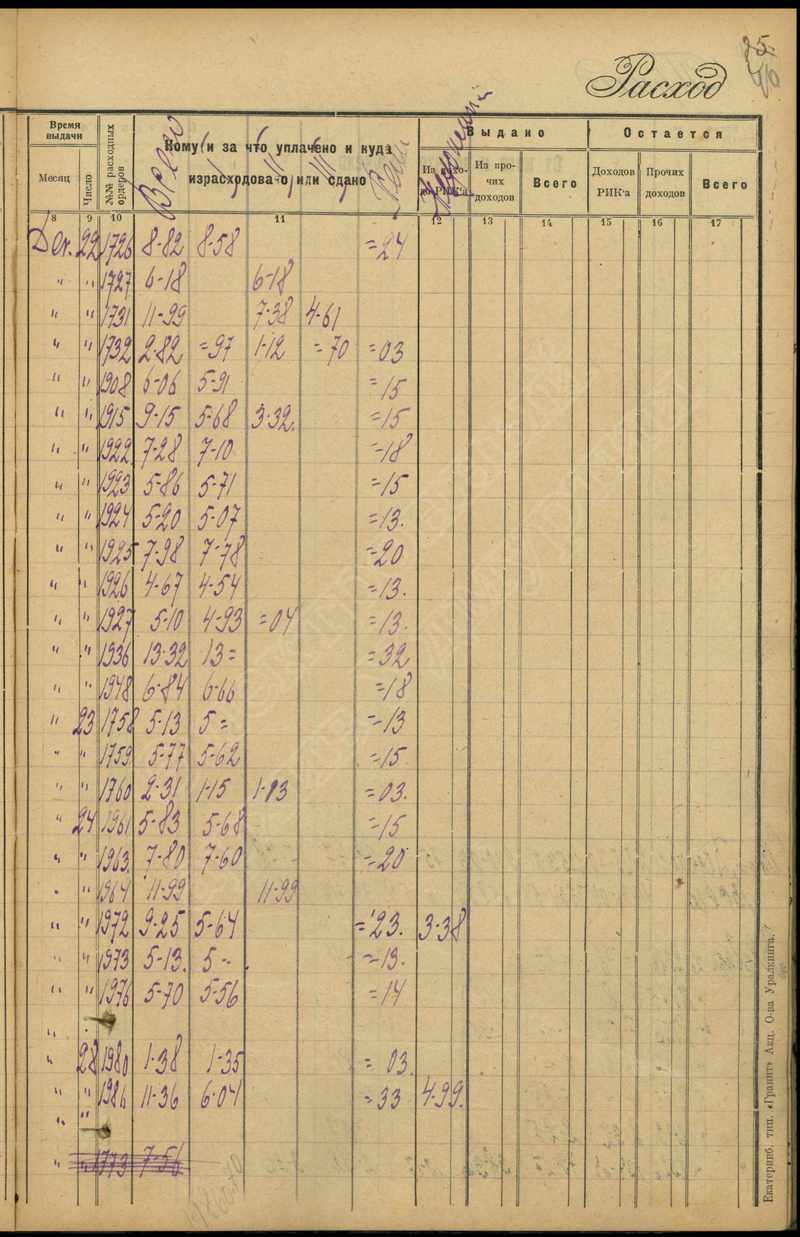 75
Расход
Время выдачи
Месяц
Число
№№ расходных ордеров
Кому и за что уплачено и куда израсходовано или сдано
Всего
Выдано
Из дохо-дов РИК'а
Из про-чих доходов
Всего
Остается
Доходов РИК'а
Прочих доходов
Всего
8 9 10 11 12 13 14 15 16 17
Дек. 22 1726 8-82 8-58 =24
" " 1727 6-18 6-18
" " 1731 11-99 7-38 4-61
" " 1732 2-82 =97 1-12 =70 =03
" " 1908 6-06 5-91 =15
" " 1915 9-15 5-68 3-32. =15
" " 1922 7-28 7-10 =18
" " 1923 5-86 5-71 =15
" " 1924 5-20 5-07 =13.
" " 1925 7-98 7-78 =20
" " 1926 4-67 4-54 =13.
" " 1927 5-10 4-93 =04 =13.
" " 1936 13-32 13= =32
" " 1948 6-84 6-66 =18
" 23 1758 5-13 5= =13
" " 1759 5-77 5-62 =15
" " 1760 2-31 1-15 1-13 =03.
" 24 1961 5-83 5-68 =15
" " 1963. 7-80 7-60 =20
" " 1964 11-99 11-99
" " 1972 9-25 5-64 =23. 3-38
" " 1973 5-13. 5- =13.
" " 1976 5-70 5-56 =14
"
" 28 1980 1-38 1-35 =03.
" " 1986 11-36 6-04 =33 4-99.
" "
" " 1773 7-56
Екатеринб. тип. «Гранит» Акц. О-ва Уралкнига.